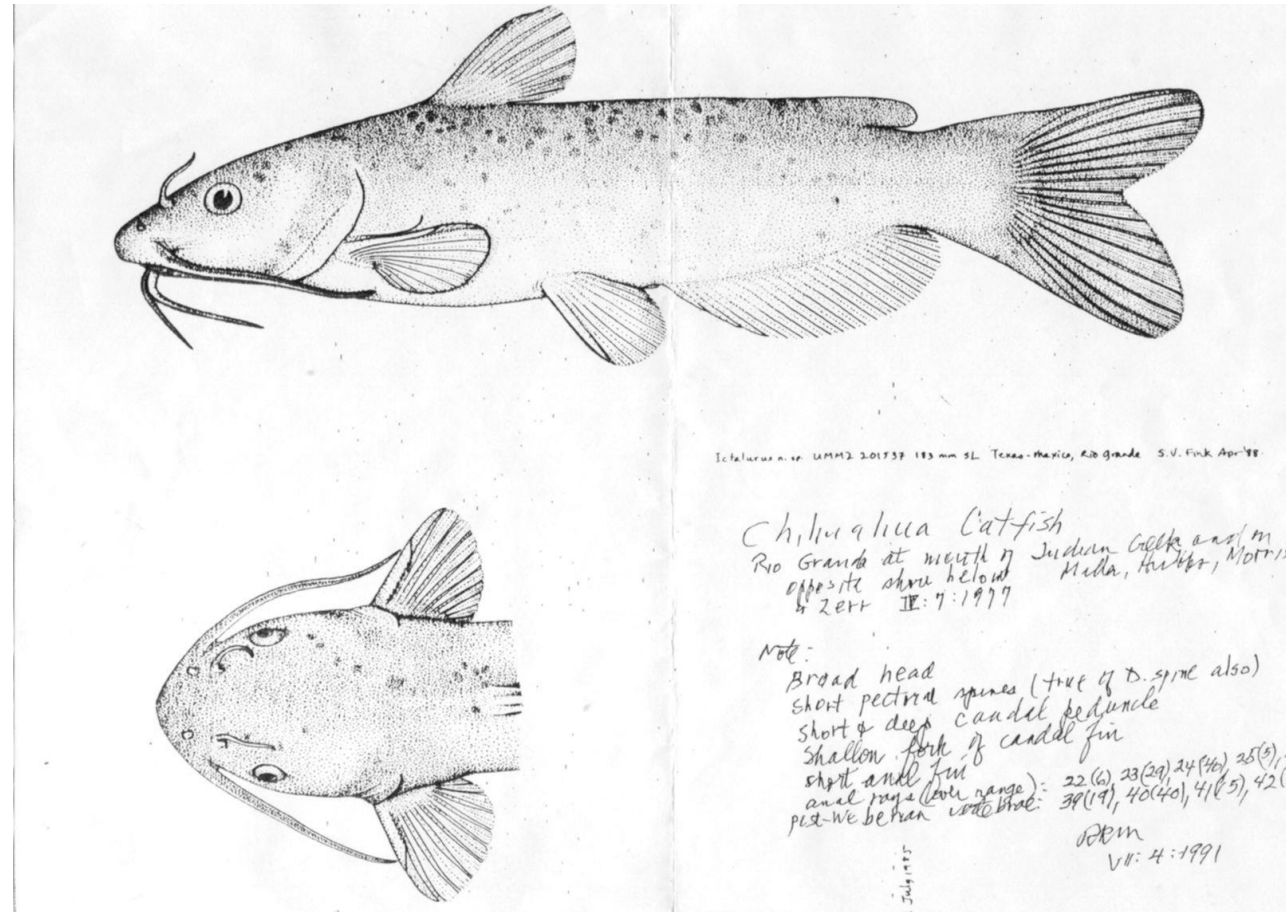 Ictalurus n. sp. UMMZ 201537 183 mm SL Texas-Mexico, Rio Grande S.V. Fink Apr '88
Chihuahua Catfish
Rio Grande at mouth of Indian Creek and on
opposite shore below Miller, Hubbs, Morris
& Zerr IV:7:1977
Note:
Broad head
short pectoral spines (true of D. spine also)
short & deep caudal peduncle
Shallow fork of caudal fin
short anal fin
anal rays (over range): 22(6), 23(29), 24(40), 25(5),
post-Weberian vertebrae: 39(19), 40(40), 41(15), 42(
RRM
VII:4:1991
July 1985